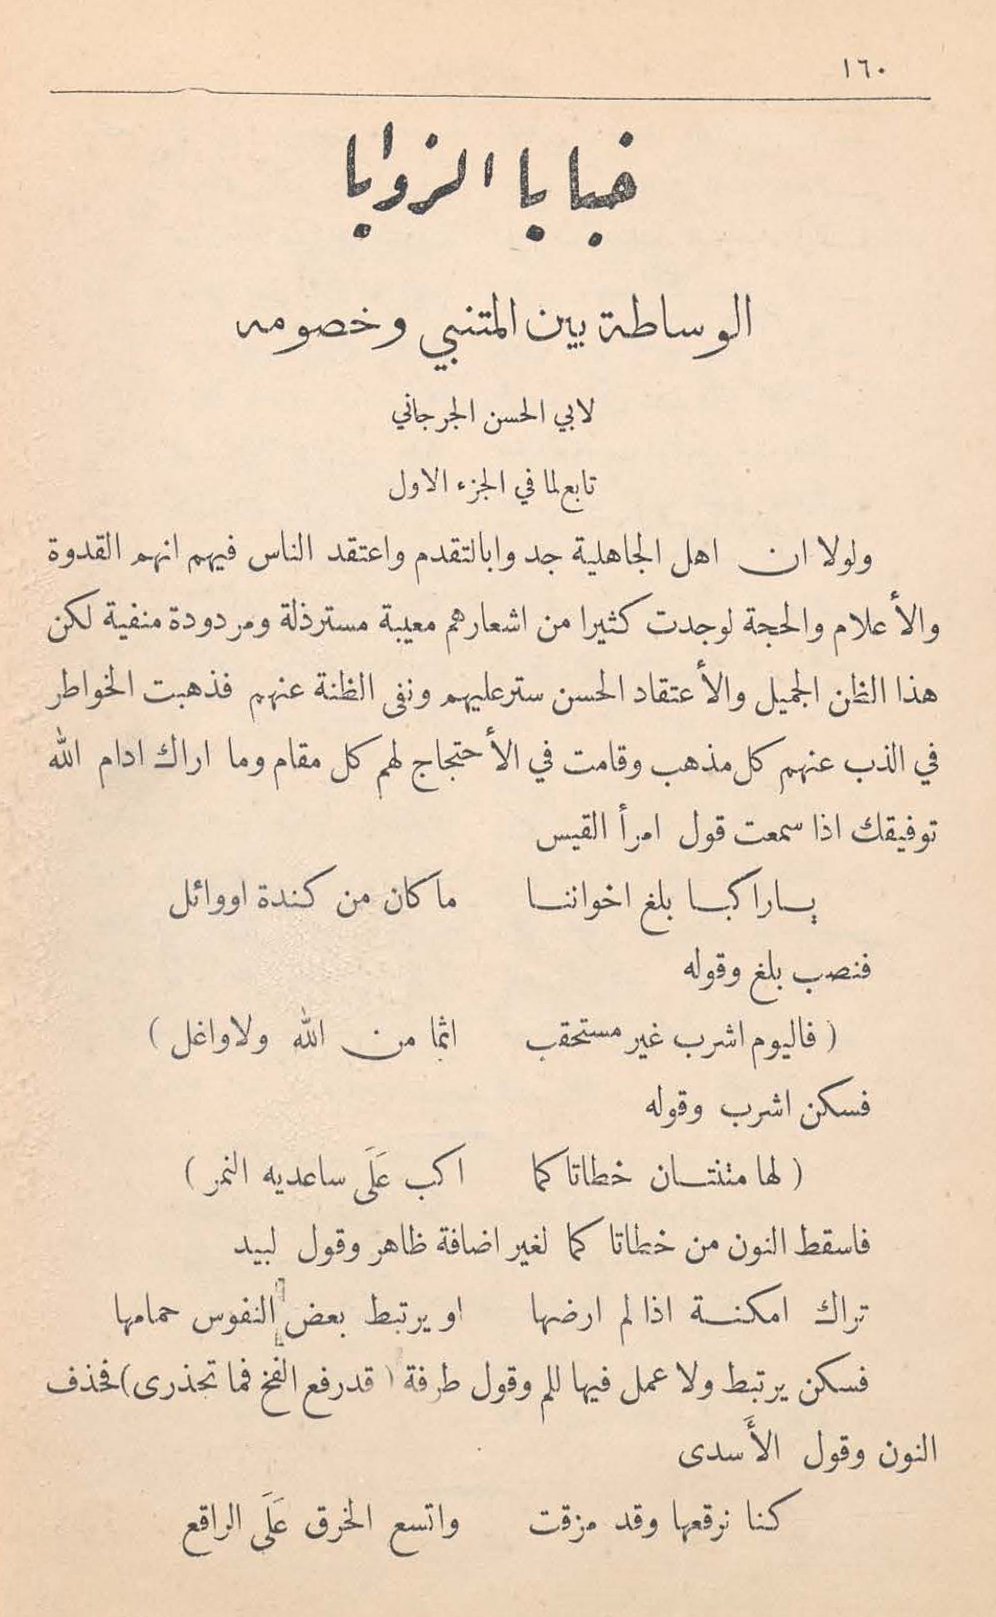 ١٦٠
خبايا الزوايا
الوساطة بين المتنبي وخصومه
لابي الحسن الجرجاني
تابع لما في الجزء الاول
ولولا ان اهل الجاهلية جد وابالتقدم واعتقد الناس فيهم انهم القدوة
والأعلام والحجة لوجدت كثيرا من اشعارهم معيبة مسترذلة ومردودة منفية لكن
هذا الظن الجميل والأعتقاد الحسن ستر عليهم ونفى الظنة عنهم فذهبت الخواطر
في الذب عنهم كل مذهب وقامت في الأحتجاج لهم كل مقام وما اراك ادام الله
توفيقك اذا سمعت قول امرأ القيس
ياراكبا بلغ اخواننا ما كان من كندة او وائل
فنصب بلغ وقوله
( فاليوم اشرب غير مستحقب اثما من الله ولا واغل )
فسكن اشرب وقوله
( لها متنتان خظاتا كما اكب عَلَى ساعديه النمر )
فاسقط النون من خظاتا كما لغير اضافة ظاهر وقول لبيد
تراك امكنة اذا لم ارضها او يرتبط بعض النفوس حمامها
فسكن يرتبط ولا عمل فيها للم وقول طرفة ( قد رفع الفخ فما تحذرى ) فحذف
النون وقول الأَسدى
كنا نرقعها وقد مزقت واتسع الخرق عَلَى الراقع